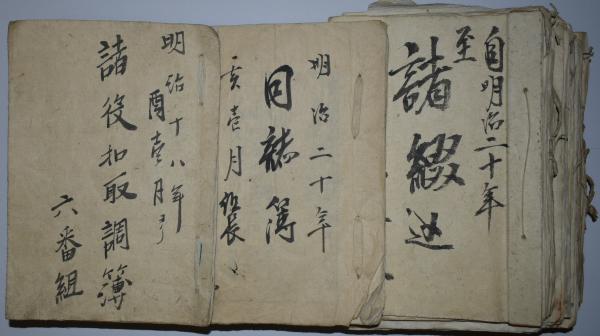 自明治二十年
至
諸綴込
明治二十年
日誌簿
亥壱月
明治十八年
酉壱月ヨリ
諸役扣取調簿
六番組